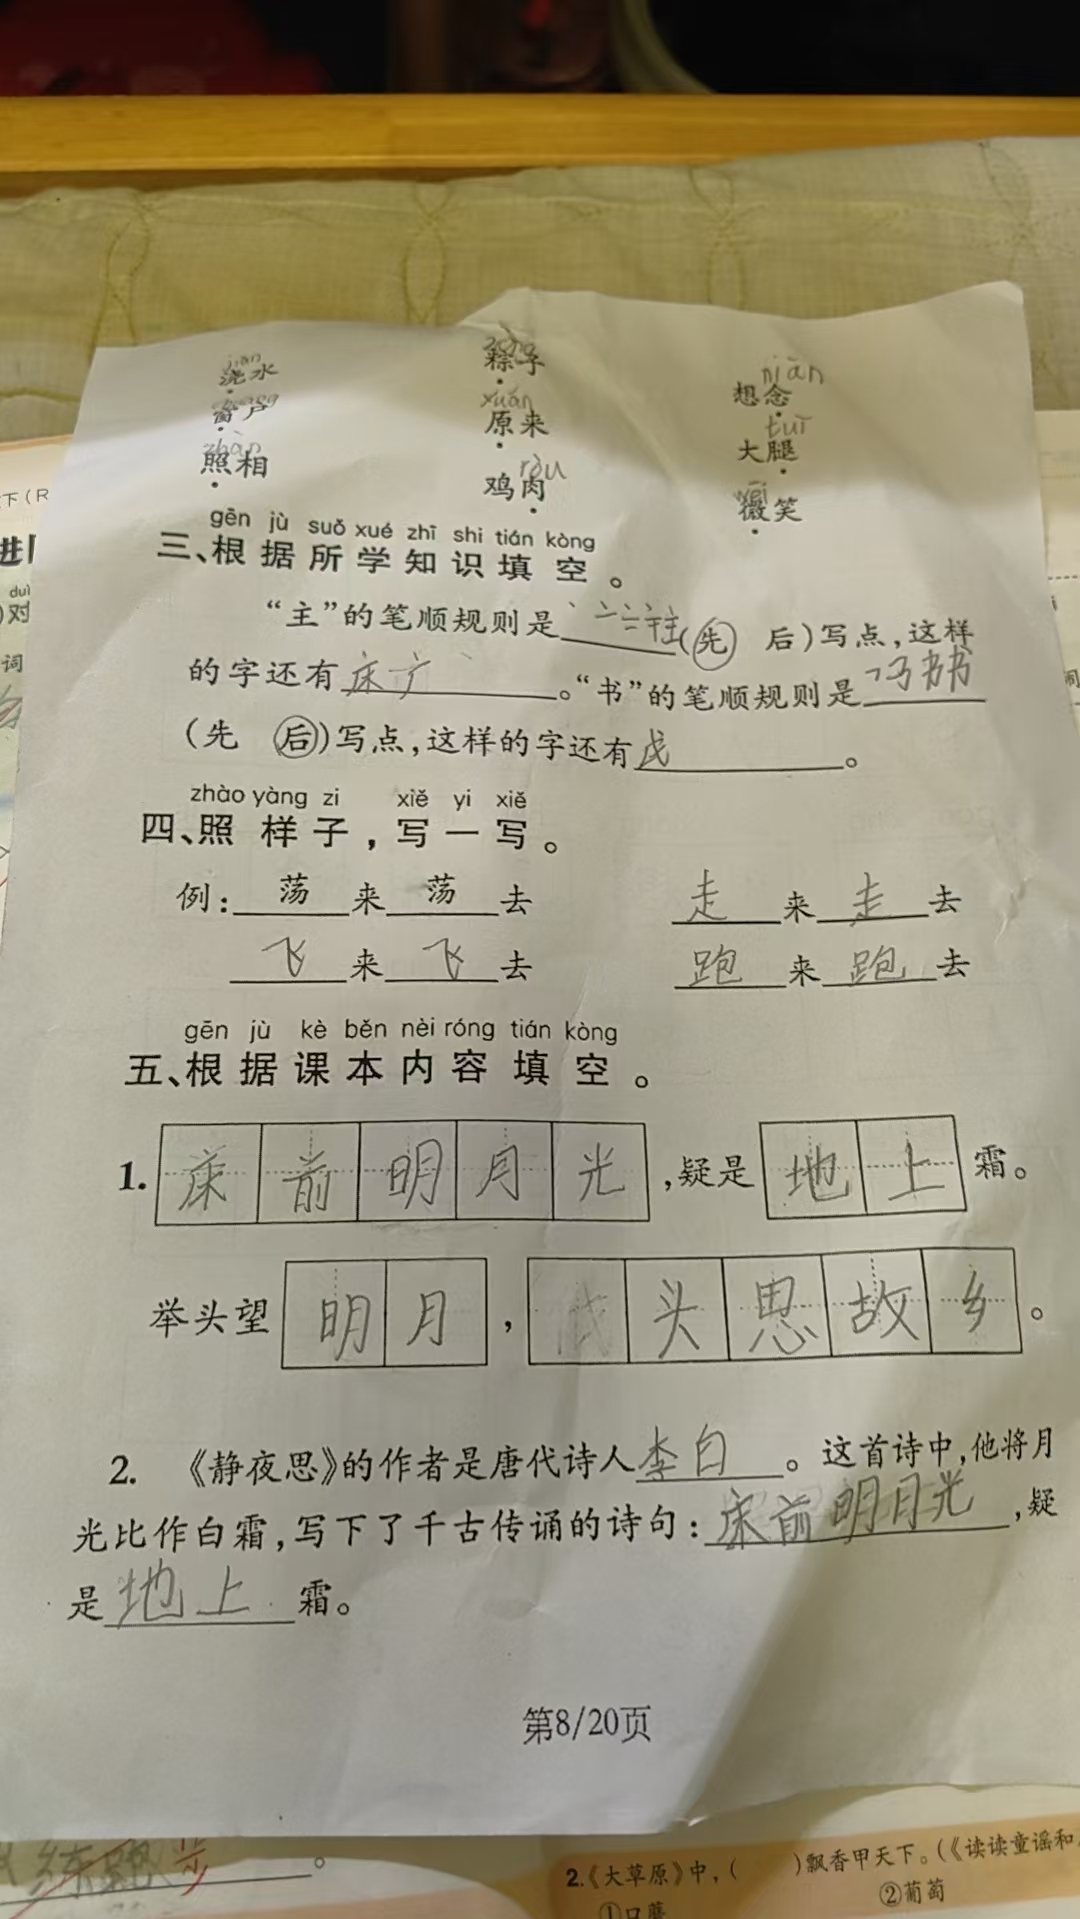 jiān zòng niān
浇水 粽子 想念
xuán tuǐ
窗户 原来 大腿
zhàn ròu wēi
照相 鸡肉 微笑
gēn jù suǒ xué zhī shi tián kòng
三、根据所学知识填空。
“主”的笔顺规则是(先 后)写点,这样
的字还有床广。“书”的笔顺规则是
(先 后)写点,这样的字还有
zhào yàng zi xiě yi xiě
四、照样子,写一写。
例:荡来荡去 走来走去
飞来飞去 跑来跑去
gēn jù kè běn nèi róng tián kòng
五、根据课本内容填空。
1.床前明月光,疑是地上霜。
举头望明月,低头思故乡。
2. 《静夜思》的作者是唐代诗人李白。这首诗中,他将月
光比作白霜,写下了千古传诵的诗句:床前明月光,疑
是地上霜。
第8/20页
下(R
duì
)对
词
练
2.《大草原》中,( )飘香甲天下。(《读读童谣和
①口蘑 ②葡萄